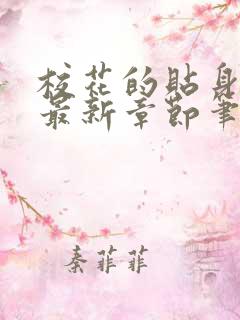 校花的贴身
最新章节笔
秦菲菲